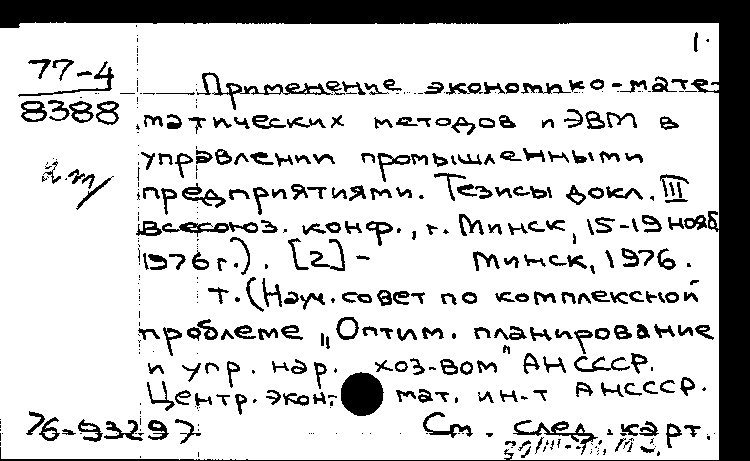 1.
77-4
8388
2 т
Применение экономико-мате-
матических методов и ЭВМ в
управлении промышленными
предприятиями. Тезисы докл. III
всесоюз. конф., г. Минск, 15-19 нояб
1976 г.). [2] - Минск, 1976.
т. (Науч. совет по комплексной
проблеме „Оптим. планирование
и упр. нар. хоз-вом" АН СССР.
Центр. экон. мат. ин-т АНСССР.
76-93297 Ст. след. карт.